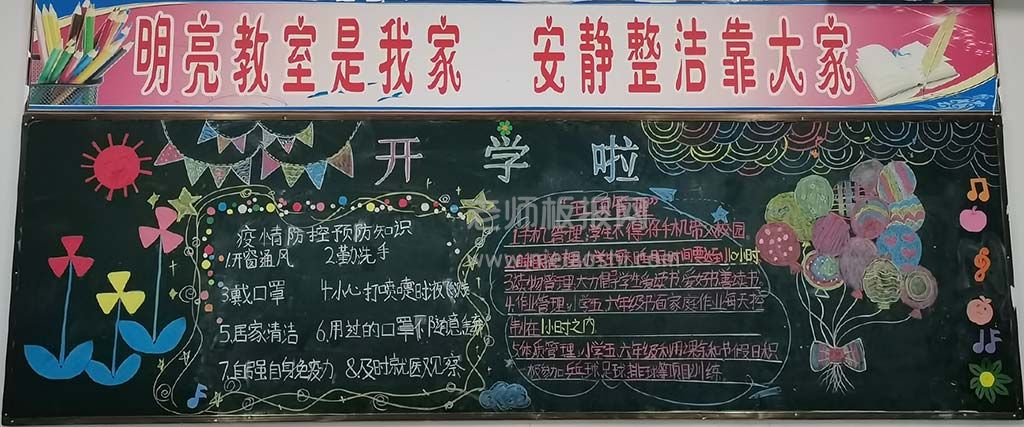 明亮教室是我家 安静整洁靠大家
开学啦
疫情防控预防知识
1.开窗通风 2.勤洗手
3.戴口罩 4.小心打喷嚏时液飞溅
5.居家清洁 6.用过的口罩不随意
7.自强自身免疫力 8及时就医观察
"五项管理"
1.手机管理:学生不得将手机带入校园
小时
3.读物管理:大力倡导学生爱读书、多读书、善读书
4.作业管理:小学五、六年级书面家庭作业每天控
制在1小时之内
5.体质管理:小学五、六年级利用课余和节假日积
极参加乒球、足球、排球等项目训练
老师板报网